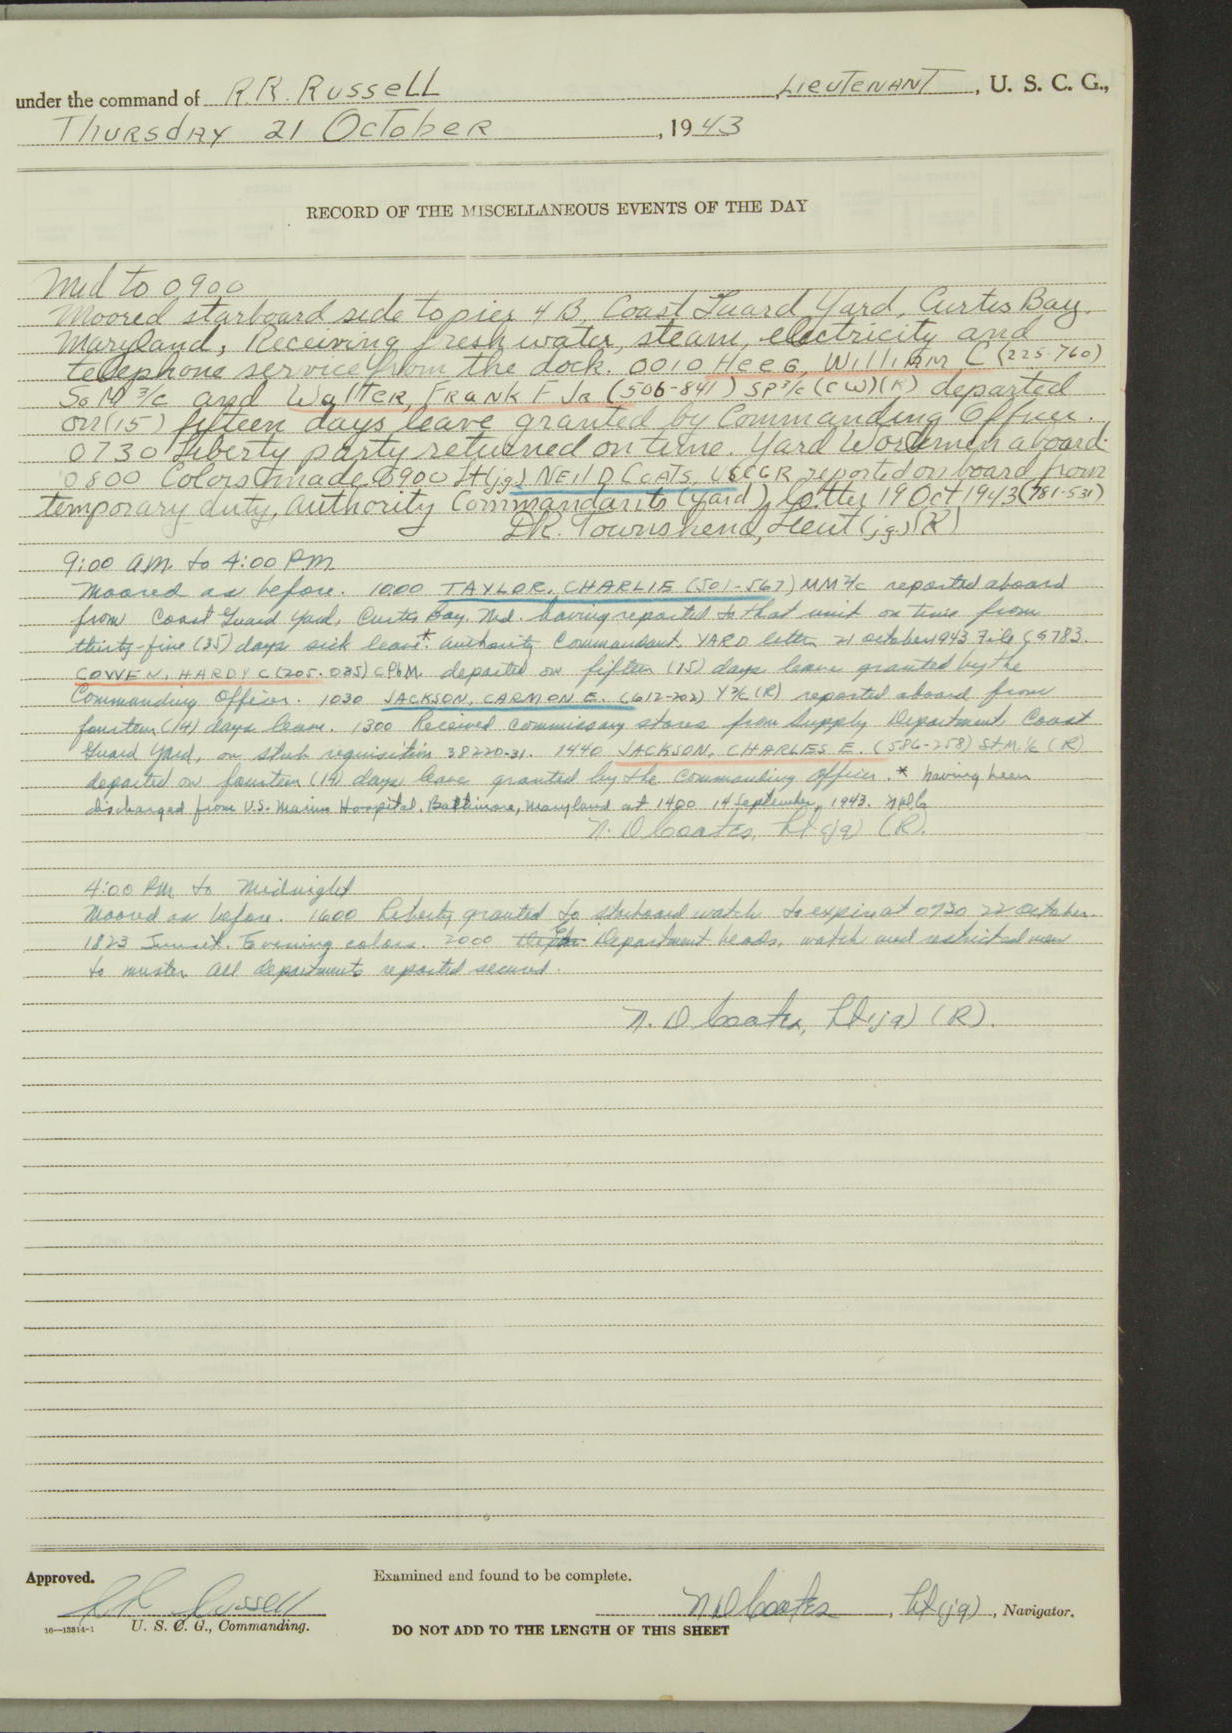 under the command of R.R. Russell Lieutenant, U. S. C. G.,
Thursday 21 October, 1943
RECORD OF THE MISCELLANEOUS EVENTS OF THE DAY
Mid to 0900
Moored starboard side to pier 4 B, Coast Guard Yard, Curtis Bay.
Maryland, Receiving fresh water, steam, electricity and
telephone service from the dock. 0010 Heeg, William C (225-760)
SoM 3/c and Walter, Frank F Jr (506-841) SP 3/c (CW)(R) departed
on (15) fifteen days leave granted by Commanding Officer.
0730 Liberty party returned on time. Yard Workmen aboard.
0800 Colors made 0900 Lt(jg) Neil D Coats, USCGR reported on board from
temporary duty, authority Commandants (Yard), letter 19 Oct 1943 (781-531)
D.K. Townshend, Lieut (jg)(R)
9:00 am to 4:00 PM
Moored as before. 1000 TAYLOR, CHARLIE (501-567) MM2/c reported aboard
from Coast Guard Yard, Curtis Bay, Md. having reported to that unit on time from
thirty-five (35) days sick leave* authority Commandant, YARD letter 21 October 1943 File CG783.
COWEN, HARDY C (205-035) CPhM. departed on fifteen (15) days leave granted by the
Commanding Officer. 1030 JACKSON, CARMON E. (612-202) Y3/c (R) reported aboard from
fourteen (14) days leave. 1300 Received commissary stores from Supply Department Coast
Guard Yard, on stub requisition 38220-31. 1440 JACKSON, CHARLES E. (586-258) StM.1/c (R)
departed on fourteen (14) days leave granted by the Commanding Officer. * having been
discharged from U.S. Marine Hospital, Baltimore, Maryland at 1400 14 September, 1943. NDC
N. D Coates, Lt (jg) (R).
4:00 PM to Midnight
Moored as before. 1600 Liberty granted to starboard watch to expire at 0730 22 October.
1823 Sunset. Evening colors. 2000 Department heads, watch and restricted men
to muster all departments reported secured.
N. D Coates, Lt (jg) (R).
Approved. Examined and found to be complete.
R R Russell N D Coates, Lt (jg), Navigator.
16—13814-1 U. S. C. G., Commanding. DO NOT ADD TO THE LENGTH OF THIS SHEET